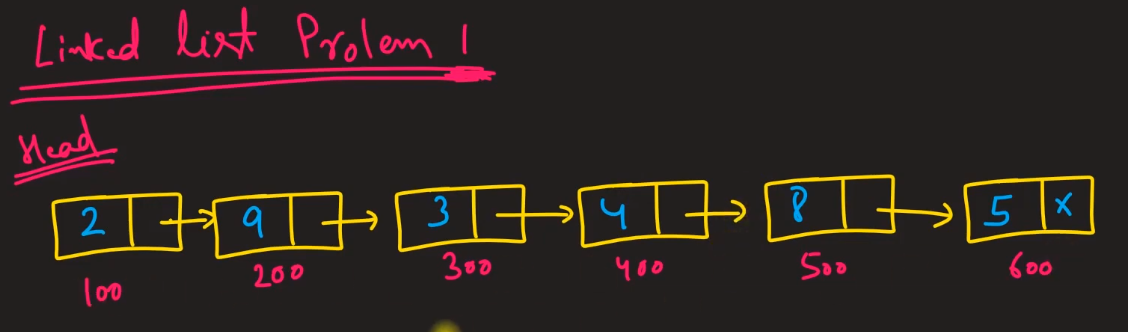 Linked list Prolem 1
Head
2 9 3 4 8 5 x
100 200 300 400 500 600